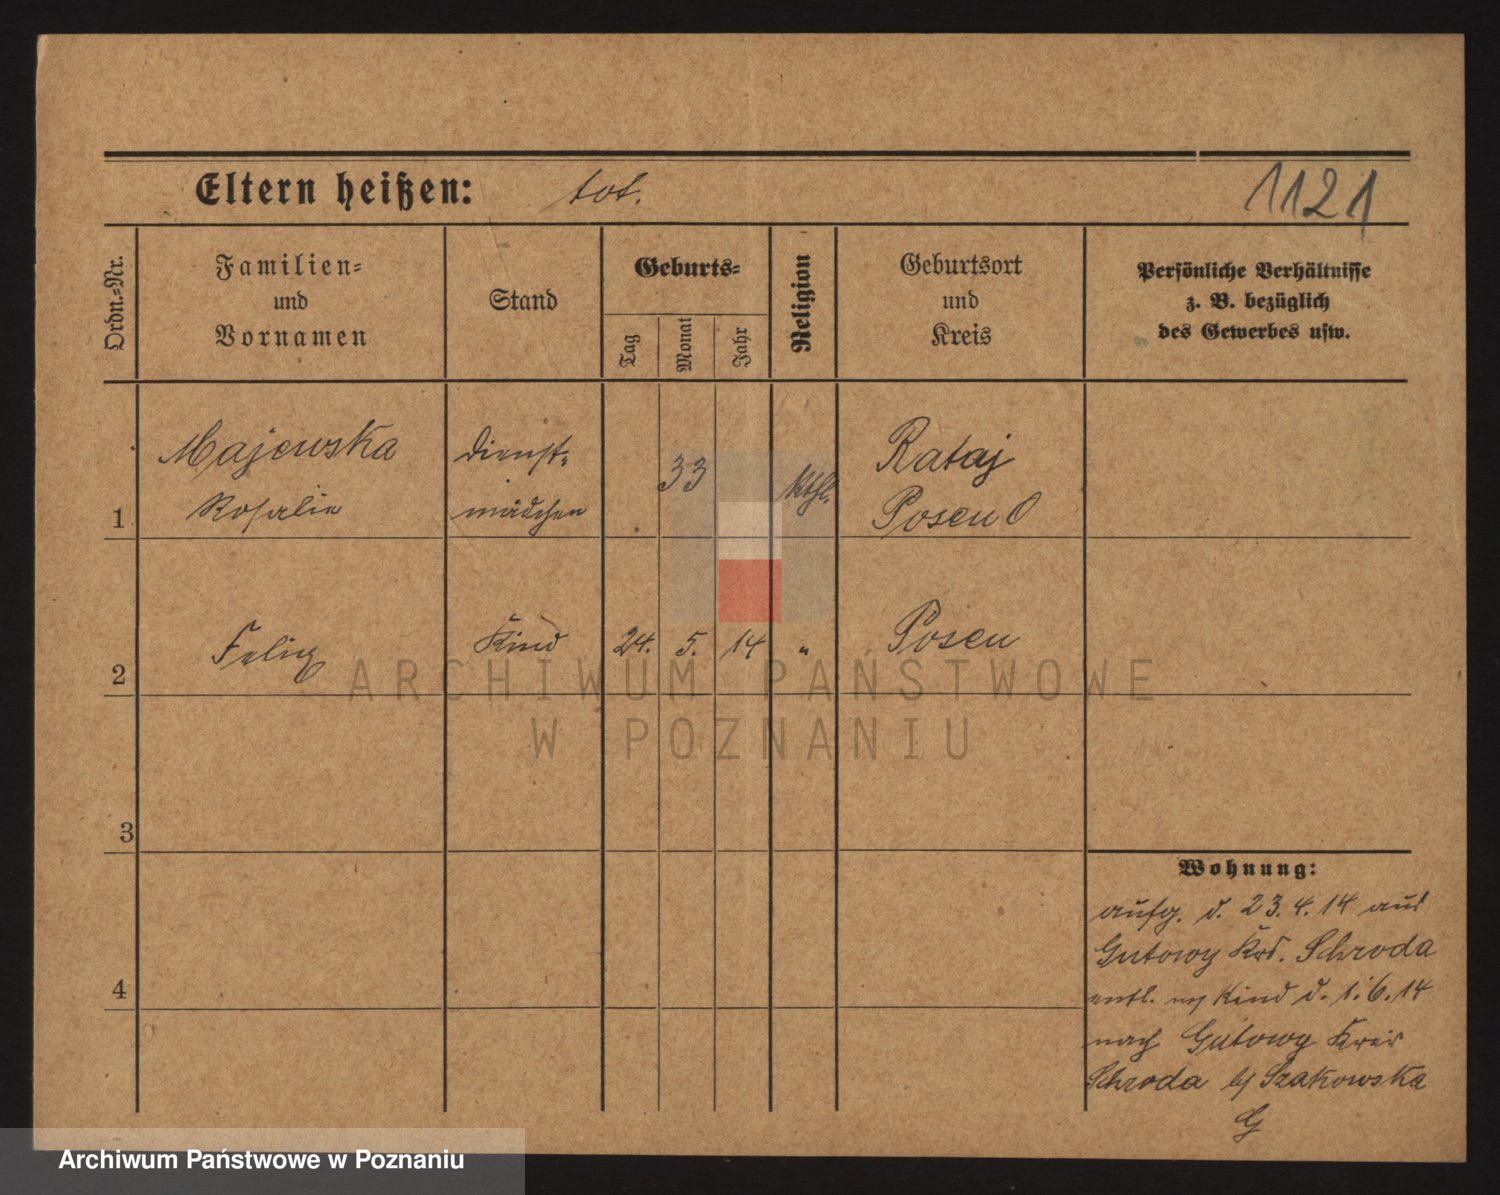 Eltern heißen: tot.
1121
Ordn.=Nr.
Familien=
und
Vornamen
Stand
Geburts=
Tag
Monat
Jahr
Religion
Geburtsort
und
Kreis
Persönliche Verhältnisse
z. B. bezüglich
des Gewerbes usw.
1
Majewska
Rosalie
Dienst=
mädchen
33
kthl.
Rataj
Posen O
2
Felix
Kind
24. 5. 14
"
Posen
3
4
Wohnung:
aufg. d. 23. 4. 14 aus
Gutowy Krs. Schroda
entl. m/ Kind d. 1. 6. 14
nach Gutowy Kreis
Schroda b/ Szakowska
G
ARCHIWUM PAŃSTWOWE
W POZNANIU
Archiwum Państwowe w Poznaniu